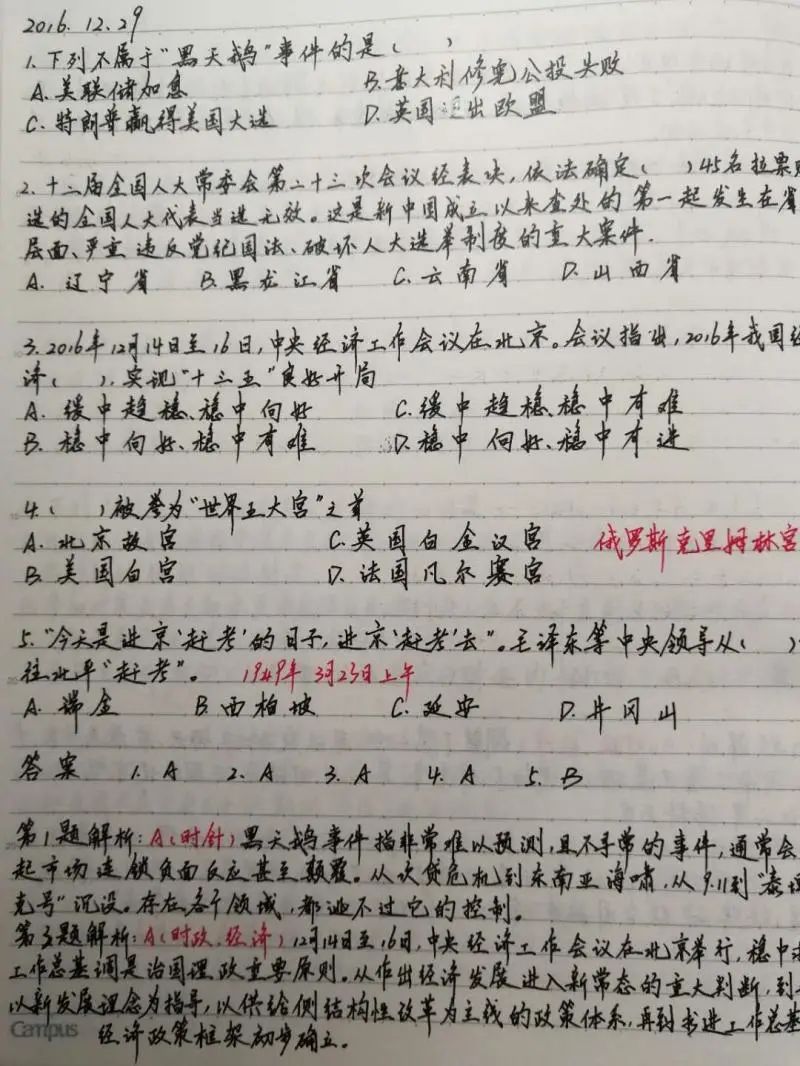 2016.12.29
1.下列不属于"黑天鹅"事件的是( )
A.美联储加息 B.意大利修宪公投失败
C.特朗普赢得美国大选 D.英国退出欧盟
2.十二届全国人大常委会第二十三次会议经表决,依法确定( )45名拉票贿
选的全国人大代表当选无效。这是新中国成立以来查处的第一起发生在省
层面、严重违反党纪国法、破坏人大选举制度的重大案件.
A.辽宁省 B.黑龙江省 C.云南省 D.山西省
3.2016年12月14日至16日,中央经济工作会议在北京。会议指出,2016年我国经
济( ),实现"十三五"良好开局
A.缓中趋稳、稳中向好 C.缓中趋稳、稳中有难
B.稳中向好、稳中有难 D.稳中向好、稳中有进
4.( )被誉为"世界五大宫"之首
A.北京故宫 C.英国白金汉宫 俄罗斯克里姆林宫
B.美国白宫 D.法国凡尔赛宫
5."今天是进京'赶考'的日子,进京'赶考'去"。毛泽东等中央领导从( )
往北平"赶考"。 1949年3月23日上午
A.瑞金 B.西柏坡 C.延安 D.井冈山
答案 1.A 2.A 3.A 4.A 5.B
第1题解析:A(时针)黑天鹅事件指非常难以预测,且不寻常的事件,通常会
起市场连锁负面反应甚至颠覆。从次贷危机到东南亚海啸,从9.11到"泰坦
克号"沉没。存在各个领域,都逃不过它的控制。
第3题解析:A(时政.经济)12月14日至16日,中央经济工作会议在北京举行,稳中求
工作总基调是治国理政重要原则。从作出经济发展进入新常态的重大判断,到
以新发展理念为指导,以供给侧结构性改革为主线的政策体系,再到 工作总基
经济政策框架初步确立。
Campus